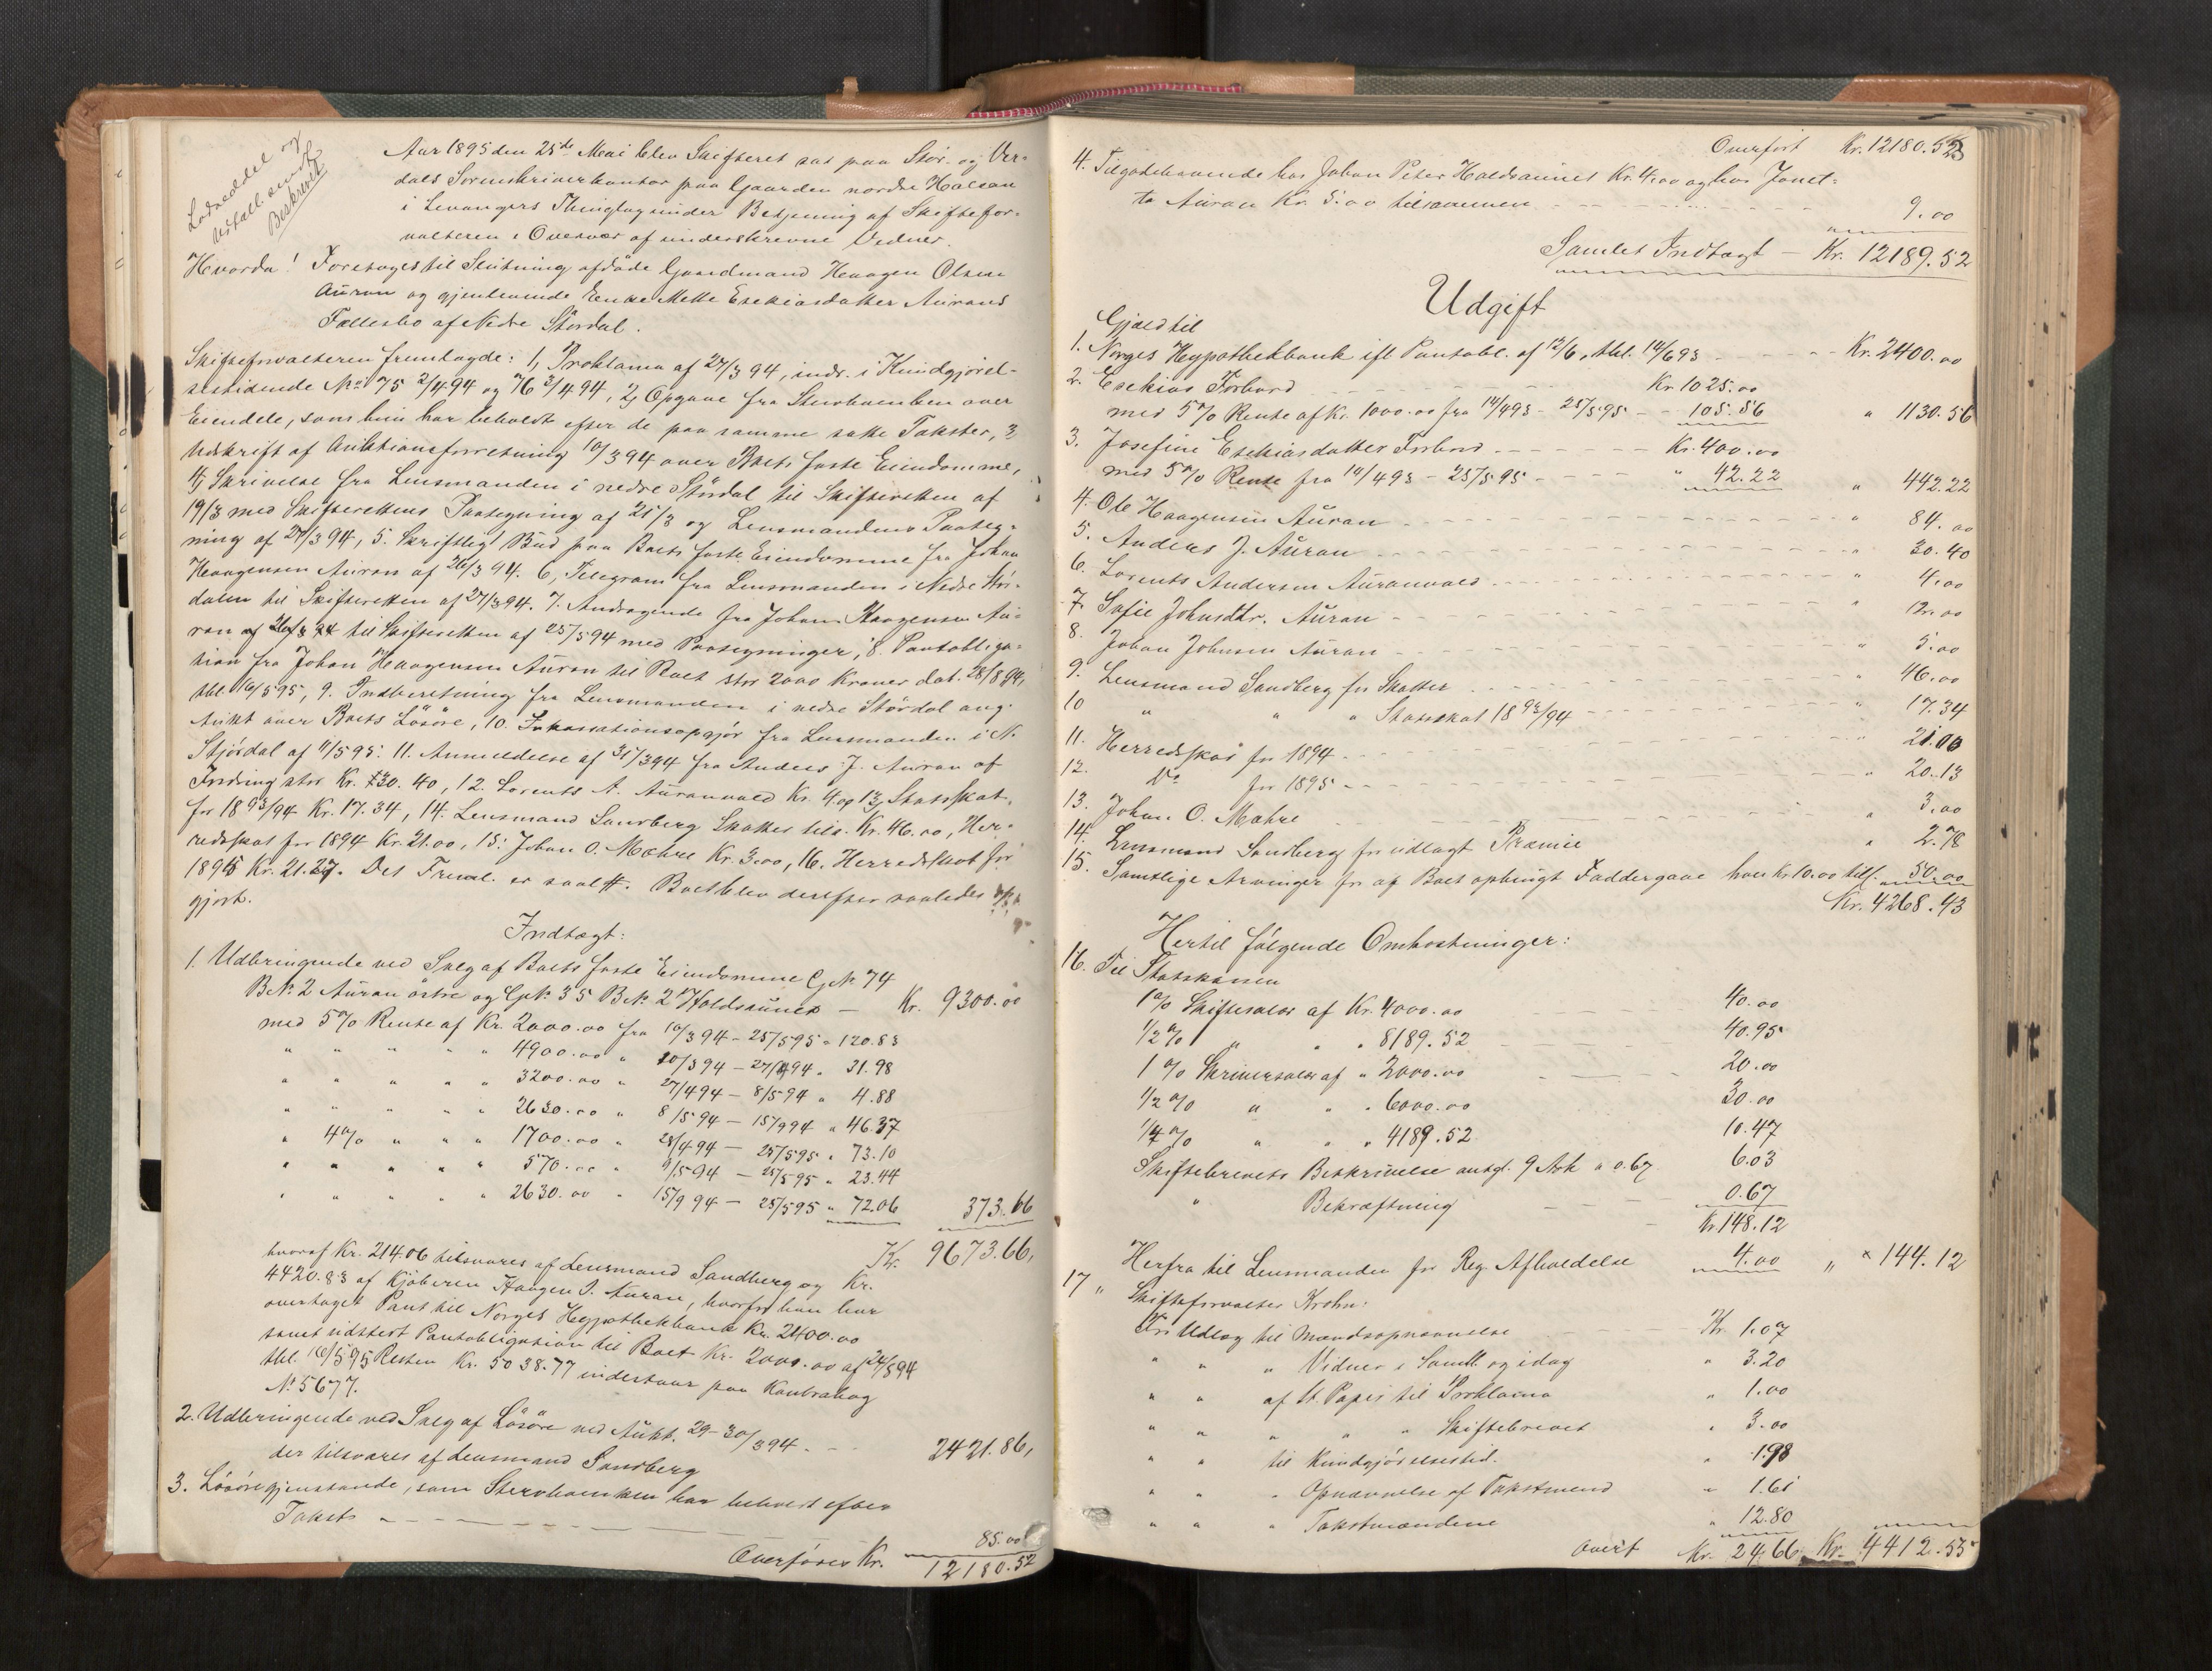 Lodseddel og
Udtall. sendt
Beskrevet
Aar 1895 den 25de Mai blev Skifteret sat paa Stør- og Ver-
dals Sorenskriverkontor paa Gaarden nordre Halsan
i Levangers Thinglag under Betjening af Skiftefor-
valteren i Overvær af underskrevne Vidner.
Hvorda! Foretoges til Slutning afdøde Gaardmand Haagen Olsen
Auran og gjenlevende Enke Mette Esekiasdatter Aurans
Fællesbo af Nedre Størdal.
Skifteforvalteren fremlagde: 1, Proklama af 27/3 94, indr. i Kundgjørel-
sestidende No 75 2/4 94 og 76 3/4 94, 2, Opgave fra Stervboenken over
Eiendele, som hun har beholdt efter de paa samme satte Takster, 3
Udskrift af Auktionsforretning 10/3 94 over Boets faste Eiendomme,
4, Skrivelse fra Lensmanden i nedre Størdal til Skifteretten af
19/3 med Skifterettens Paategning af 21/3 og Lensmandens Paateg-
ning af 27/3 94, 5. Skriftligt Bud paa Boets faste Eiendomme fra Johan
Haagensen Auran af 26/3 94. 6, Telegram fra Lensmanden i Nedre Stør-
dalen til Skifteretten af 27/3 94. 7. Andragende fra Johan Haagensen Au-
ran af 26/3 94 til Skifteretten af 25/5 94 med Paategninger, 8. Pantobliga-
tion fra Johan Haagensen Auran til Boet stor 2000 Kroner dat. 28/8 94,
thl. 16/5 95, 9. Indberetning fra Lensmanden i nedre Størdal ang.
Aukt over Boets Løsøre, 10. Inkassationsopgjør fra Lensmanden i N.
Stjørdal af 11/5 95: 11. Anmeldelse af 31/3 94 fra Anders J. Auran af
Fordring stor Kr. 30.40, 12. Lorents A. Auranvald Kr. 4 og 13, Statsskat
for 1893/94 Kr. 17.34, 14. Lensmand Sandberg Skatter tils. Kr. 46.00, Her-
redsskat for 1894 Kr. 21.00, 15: Johan O. Mæhre Kr. 3.00, 16. Herredsskat for
1895 Kr. 21.27. Det Freml. er saal. Boet blev derefter saaledes opgjort.
gjort.
Indtægt:
1. Udbringende ved Salg af Boets faste Eiendomme G. N. 74
B. N. 2 Auran østre og G. N. 35 B. N. 2 Holdsaunet — Kr. 9300.00
med 5% Rente af Kr. 2000.00 fra 10/3 94 - 25/5 95 " 120.83
" " " " " 4900.00 " 10/3 94 - 27/4 94 " 31.98
" " " " " 3200.00 " 27/4 94 - 8/5 94 " 4.88
" " " " " 2630.00 " 8/5 94 - 15/9 94 " 46.37
" 4% " " " 1700.00 " 28/4 94 - 25/5 95 " 73.10
" " " " " 570.00 " 9/5 94 - 25/5 95 " 23.44
" " " " " 2630.00 " 15/9 94 - 25/5 95 " 72.06 373.66
Kr. 9673.66,
hvoraf Kr. 214.06 tilsvares af Lensmand Sandberg og Kr.
4420.83 af Kjøberen Haagen J. Auran, hvorfor han har
overtaget Pant til Norges Hypothekbank Kr. 2400.00
samt udstedt Pantobligation til Boet Kr. 2000.00 af 28/8 94
thl. 16/5 95 Resten Kr. 5038.77 indestaar paa Kontrabog
No 5677.
2. Udbringende ved Salg af Løsøre ved Aukt. 29-30/3 94 - - 2421.86,
der tilsvares af Lensmand Sandberg
3. Løsøregjenstande, som Stervboenken har beholdt efter
Takst - - - 85.00
Overføres Kr. 12180.52
Overført Kr. 12180.52
4. Tilgodehavende hos Johan Peter Holdsaunet Kr. 4.00 og hos Jonet-
ta Auran Kr. 5.00 tilsammen - - - 9.00
Samlet Indtægt — Kr. 12189.52
Udgift
Gjæld til
1. Norges Hypothekbank ifl Pantobl. af 12/6, thl. 14/6 93 - - - Kr. 2400.00
2. Esekias Forbord - - - Kr 1025.00
med 5% Rente af Kr. 1000.00 fra 14/4 93 - 25/5 95 - - 105.56 " 1130.56
3. Josefine Esekiasdatter Forbord - - - Kr. 400.00
med 5% Rente fra 14/4 93 - 25/5 95 - - - " 42.22 " 442.22
4. Ole Haagensen Auran - - - " 84.00
5. Anders J. Auran - - - " 30.40
6. Lorents Andersen Auranvald - - - " 4.00
7. Sofie Johnsdtr. Auran - - - " 12.00
8. Johan Johnsen Auran - - - " 5.00
9. Lensmand Sandberg for Skatter - - - " 46.00
10 " " " Statsskat 1893/94 - - - " 17.34
11. Herredsskat for 1894 - - - " 21.00
12. Do for 1895 - - - " 20.13
13. Johan O. Mæhre - - - " 3.00
14. Lensmand Sandberg for udlagt Præmie " 2.78
15. Samtlige Arvinger for af Boet opbrugt Faddergave hver Kr. 10.00 tils. 50.00
Kr. 4268.43
Hertil følgende Omkostninger:
16. Til Statskassen
1% Skiftesalær af Kr. 4000.00 40.00
1/2% " " " 8189.52 40.95
1% Skriversalær af " 2000.00 20.00
1/2% " " " 6000.00 30.00
1/4% " " " 4189.52 10.47
Skiftebrevets Beskrivelse antgl. 9 Ark a 0.67 6.03
" Bekræftning 0.67
Kr. 148.12
Herfra til Lensmanden for Reg. Afholdelse 4.00 " × 144.12
17 " Skifteforvalter Krohn:
For Udlæg til Mandsopnævnelse Kr. 1.07
" " " Vidner i Saml. og idag " 3.20
" " af St. Papir til Proklama " 1.00
" " " " " Skiftebrevet " 3.00
" " til Kundgjørelsestid. " 1.98
" " " Opnævnelse af Takstmænd " 1.61
" " " Takstmændene " 12.80
Overf Kr. 24.66 Kr. 4412.55